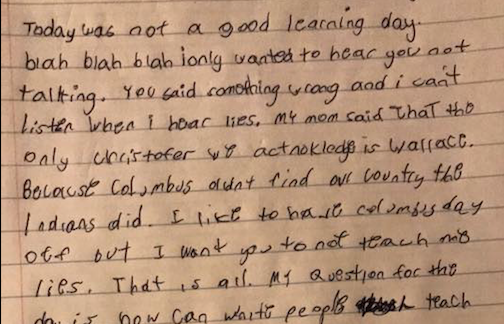 Today was not a good learning day.
blah blah blah ionly wanted to hear you not
talking. You said something wrong and i can't
listen when I hear lies. My mom said That the
only christofer we acknoledge is wallace.
Because Columbus didnt find our country the
Indians did. I like to have columbus day
off but I want you to not teach me
lies. That is all. My Question for the
day is how can white people teach